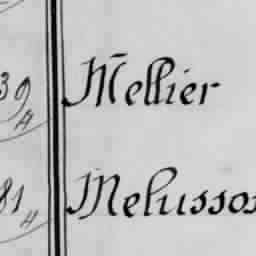 39 Mellier
81 Melusson